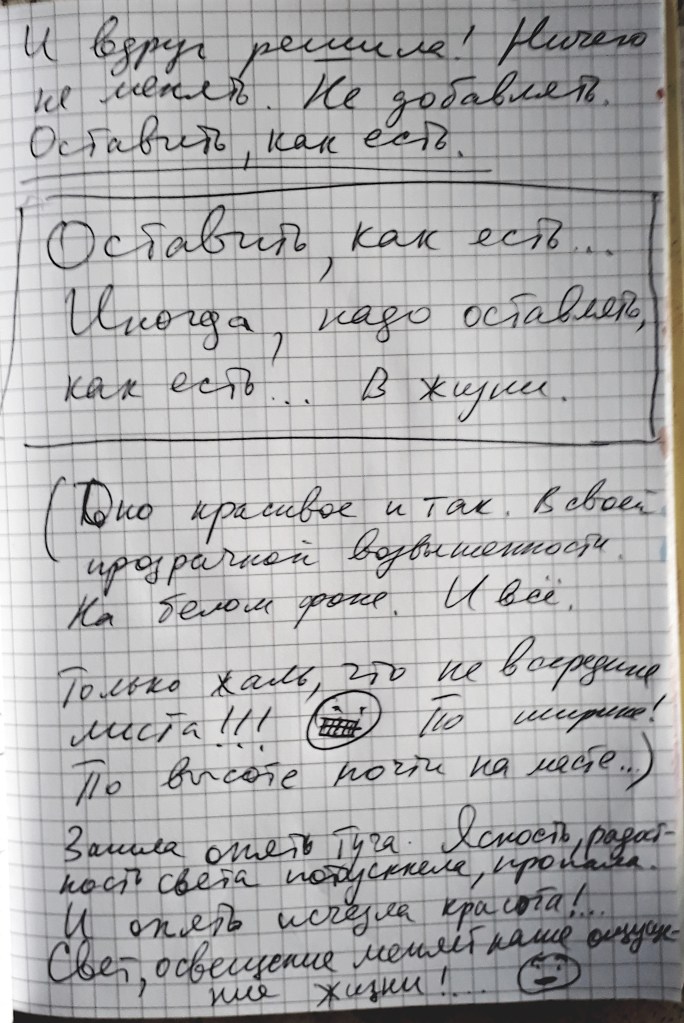 И вдруг решила! Ничего
не менять. Не добавлять.
Оставить, как есть.
Оставить, как есть...
Иногда, надо оставлять,
как есть... В жизни.
(Оно красивое и так. В своей
прозрачной возвышенности.
На белом фоне. И всё.
Только жаль, что не в середине
листа!!! По ширине!
По высоте почти на месте...)
Зашла опять туча. Ясность, радост-
ность света потускнела, пропала.
И опять исчезла красота!..
Свет, освещение меняет наше ощуще-
ние жизни!...